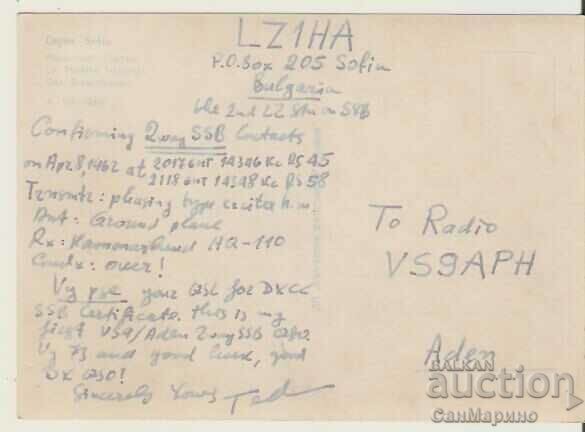 LZ1HA
P.O.Box 205 Sofia
Bulgaria
the 2nd LZ Stn on SSB
Confirming 2way SSB Contacts
on Apr 8, 1962 at 2017 GMT 14346 Kc RS 45
2118 GMT 14348 Kc RS 58
Transmtr: phasing type exciter h.m.
Ant: Ground plane
Rx: Hammarlund HQ-110
Condx: over!
Vy pse your QSL for DXCC
SSB Certificate. this is my
first VS9/Aden 2way SSB QSO.
Vy 73 and good luck, good
DX QSO!
Sincerely Yours Ted
To Radio
VS9APH
Aden
BALKAN
auction
СанМарино